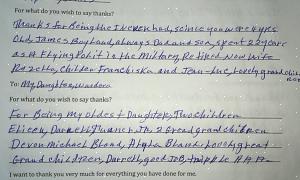 For what do you wish to say thanks?
Thanks for Being the I never had, since you were 4 yrs
Old, James Boyhood, always Dad and son, spent 22 years
as A Flying Pohit is the Military, Retired Now wife
Children Franchiska and Jean-luc, lovely grandchild
To: My, Daughter,
For what do you wish to say thanks?
For Being My oldest Daughter, Two Children
2 Great grandchildren
Devon Michael Bload, Alysha Bload lovely great
Grand children, Darcthy good JOB, tripple AAA-
I want to thank you very much for everything you have done for me.